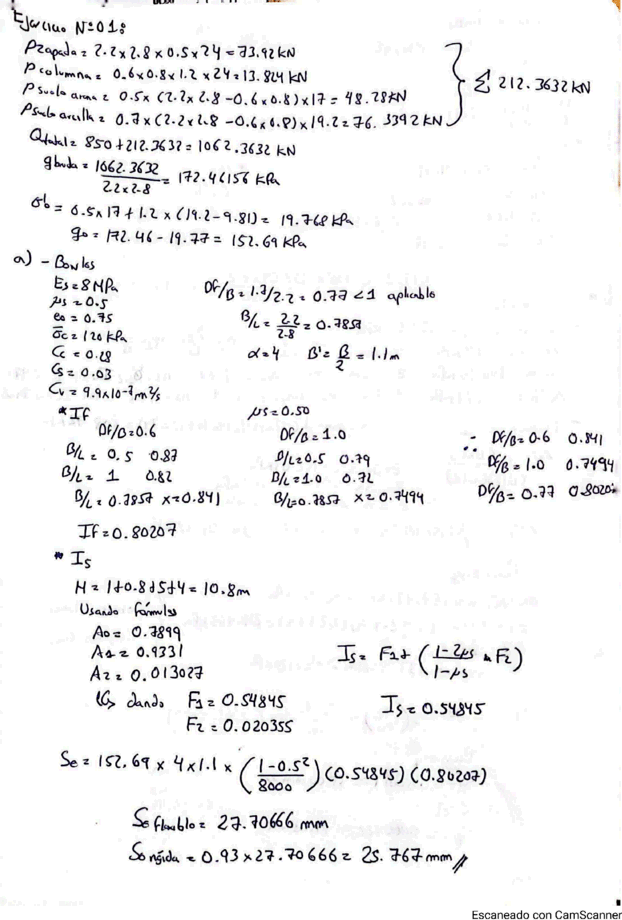 Ejercicio N°01:
Pzapata = 2.2 x 2.8 x 0.5 x 24 = 73.92 kN
Pcolumna = 0.6 x 0.8 x 1.2 x 24 = 13.824 kN
P suelo arena = 0.5 x (2.2 x 2.8 - 0.6 x 0.8) x 17 = 48.28 KN
Psuelo arcilla = 0.7 x (2.2 x 2.8 - 0.6 x 0.8) x 19.2 = 76.3392 kN
Σ 212.3632 kN
Qtotal = 850 + 212.3632 = 1062.3632 kN
qbruta = 1062.3632 / 2.2 x 2.8 = 172.46156 kPa
σ'o = 0.5 x 17 + 1.2 x (19.2 - 9.81) = 19.768 kPa
qo = 172.46 - 19.77 = 152.69 KPa
a) - Bowles
Es = 8 MPa
Df/B = 1.7/2.2 = 0.77 < 1 aplicable
μs = 0.5
eo = 0.75
B/L = 2.2/2.8 = 0.7857
σ̄c = 120 kPa
Cc = 0.28
α = 4 B' = B/2 = 1.1m
Cs = 0.03
Cv = 9.9x10⁻⁷ m²/s
* If
μs = 0.50
Df/B = 0.6
B/L = 0.5 0.87
B/L = 1 0.82
B/L = 0.7857 x = 0.841
Df/B = 1.0
B/L = 0.5 0.79
B/L = 1.0 0.72
B/L = 0.7857 x = 0.7494
∴ Df/B = 0.6 0.841
Df/B = 1.0 0.7494
Df/B = 0.77 0.8020
If = 0.80207
* Is
H = 1+0.8+5+4 = 10.8m
Usando fórmulas
Ao = 0.7899
A1 = 0.9331
A2 = 0.013027
Is = F1 + (1-2μs / 1-μs * F2)
dando F1 = 0.54845
Is = 0.54845
F2 = 0.020355
Se = 152.69 x 4 x 1.1 x (1-0.5² / 8000) (0.54845) (0.80207)
Se flexible = 27.70666 mm
Se rígida = 0.93 x 27.70666 = 25.767 mm //
Escaneado con CamScanner